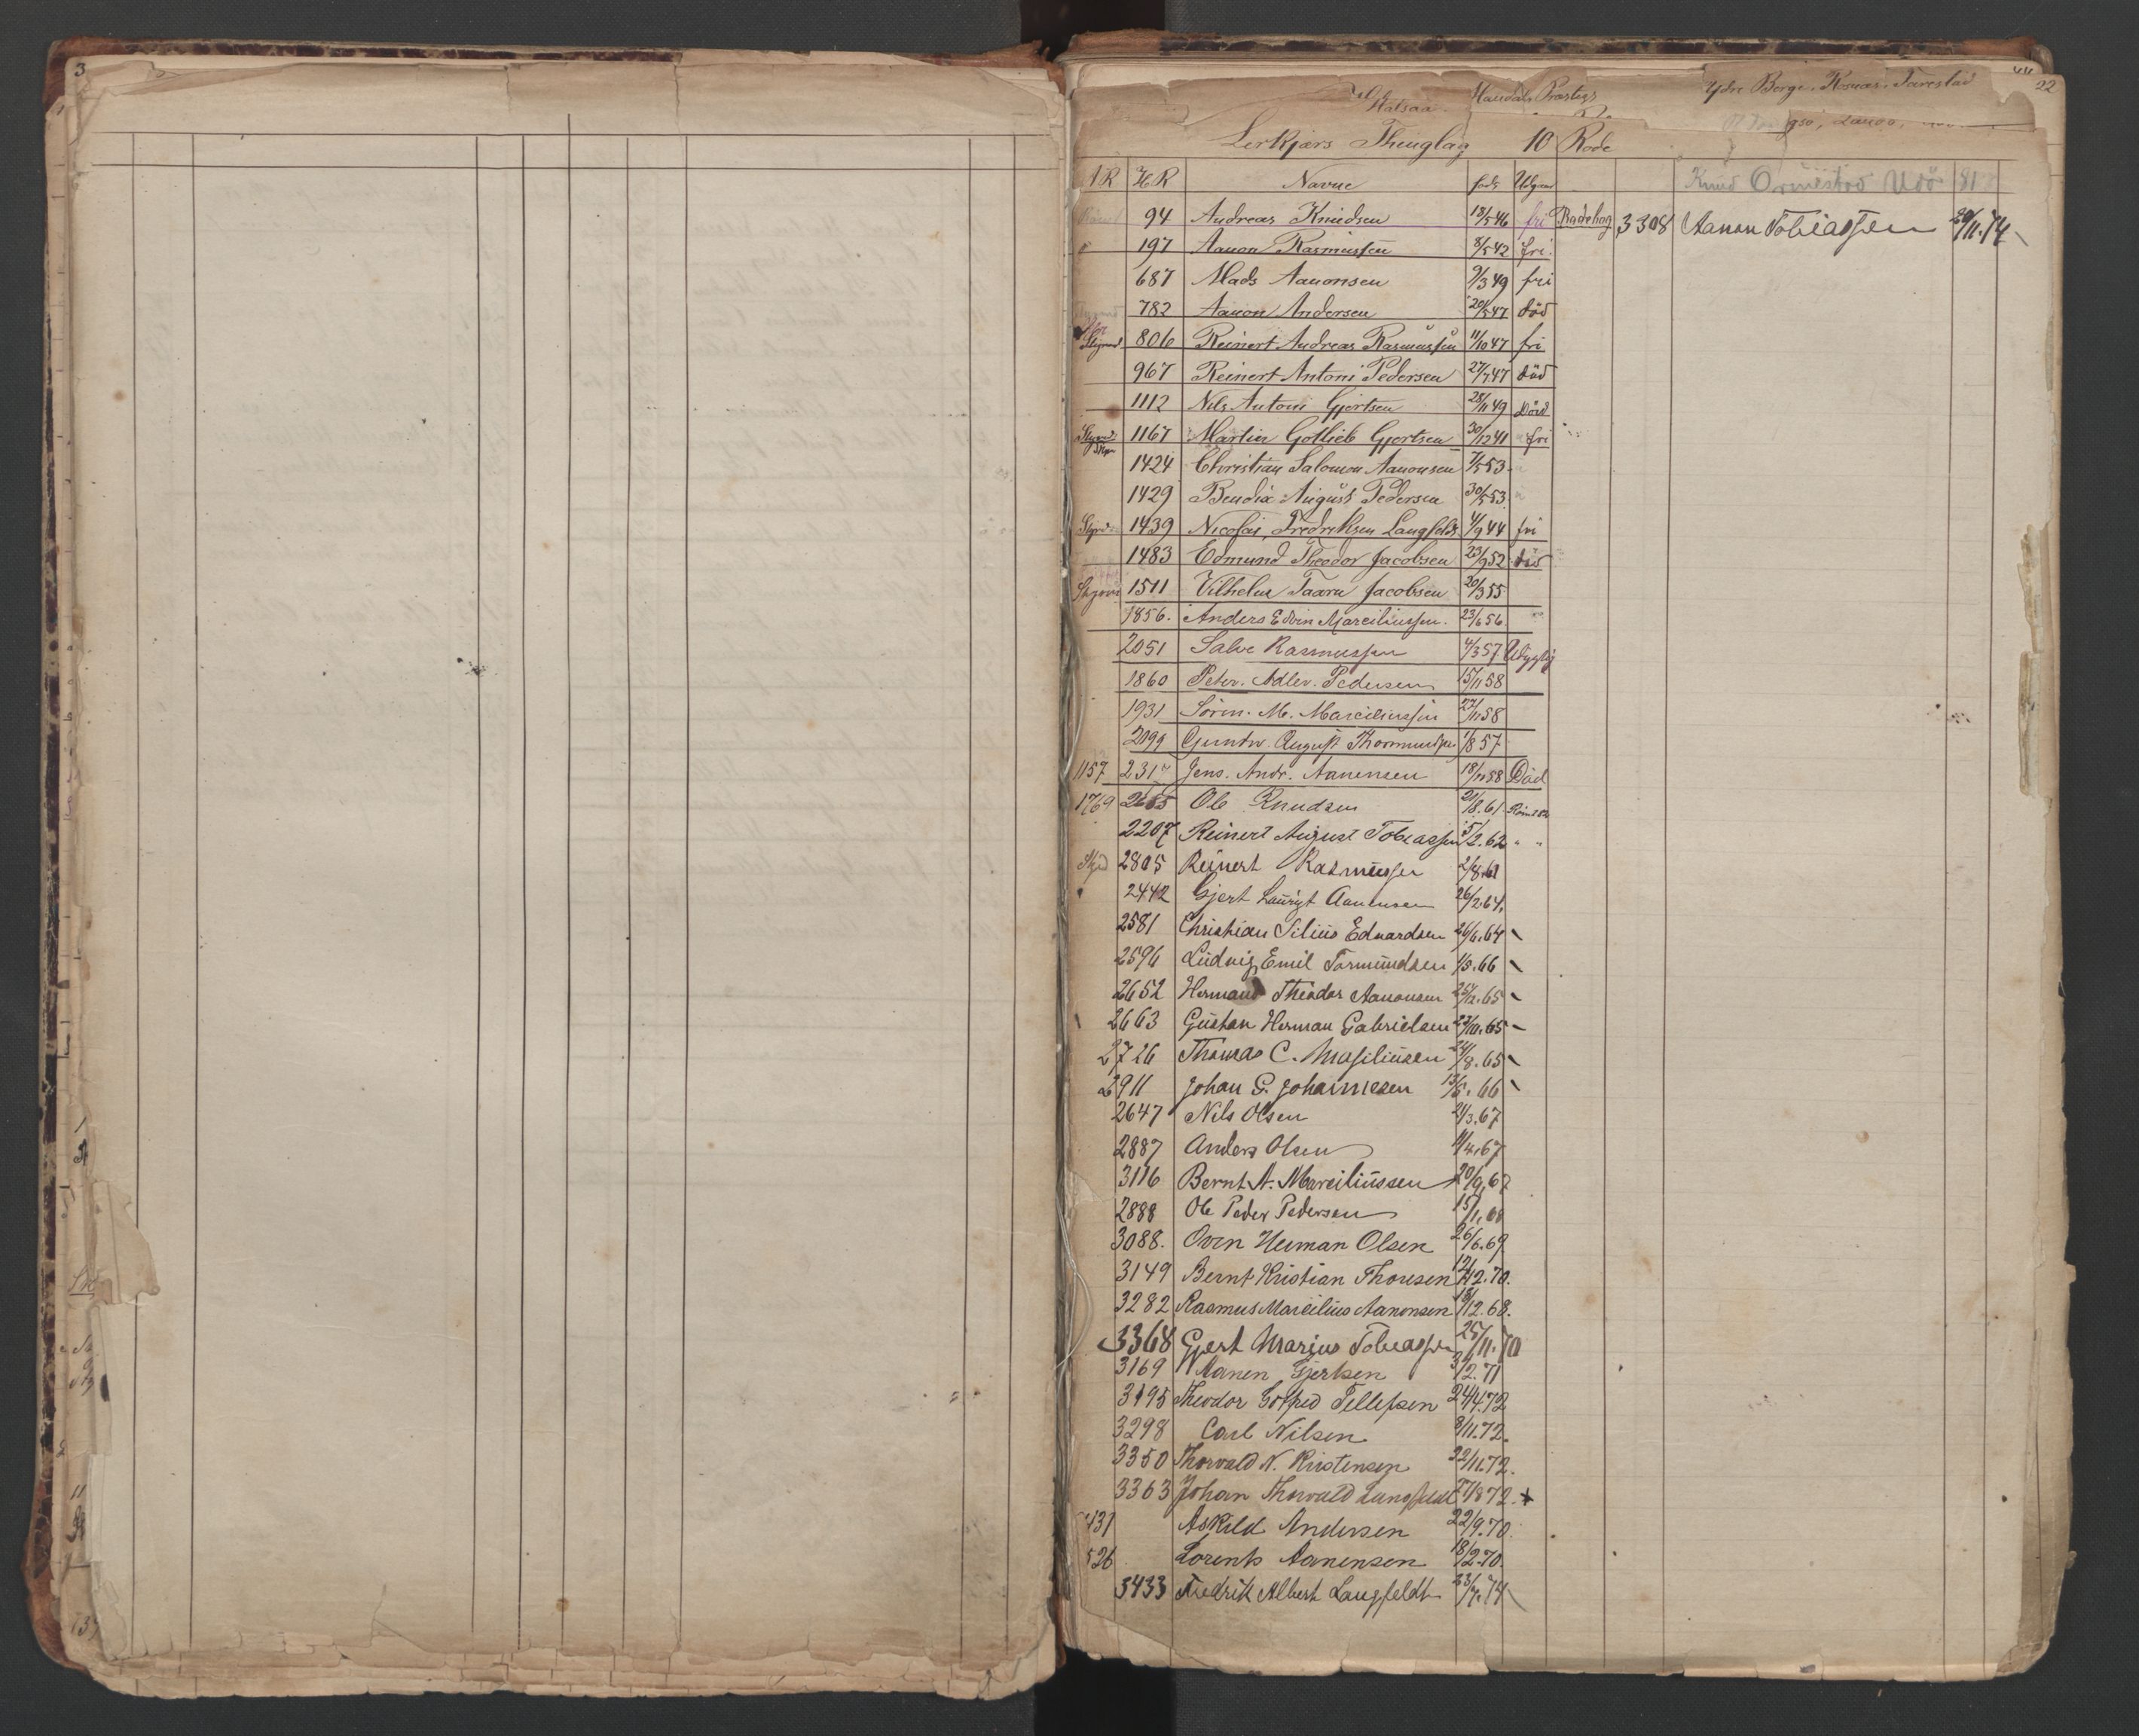 3
22
Halsaa Mandals Præstegj
Ydre Berge. Rosnæs. Tarestad
Lerkjærs Thinglag 10 Rode
AR HR Navne født Udgaar
Knud Ormestad Udö 81
94 Andreas Knudsen 18/5 46 fri Rødehog 3308 Aanon Tobiassen 20/11.74
197 Aanon Rasmussen 8/5 42 fri
687 Mads Aanonsen 9/3 49 fri
782 Aanon Andersen 20/5 47 död
806 Reinert Andreas Rasmussen 11/10 47 fri
967 Reinert Antoni Pedersen 27/7 47 död
1112 Nils Antoni Gjertsen 28/11 49 Död
1167 Martin Gotlieb Gjertsen 30/12 41 fri
1424 Christian Salomon Aanonsen 7/5 53
1429 Bendix August Pedersen 30/5 53
Styrd 1439 Nicolai Fredriksen Langfeldt 4/9 44 fri
1483 Edmund Theodor Jacobsen 23/9 52 död
1511 Vilhelm Taara Jacobsen 20/3 55
1856. Anders Edvin Marciliussen. 23/6 56
2051 Salve Rasmussen 4/3 57 Udygtig
1860 Peter. Adler. Pedersen 15/11 58
1931 Sören. M. Marciliussen 27/11 58
2099 August 1/8 57
1157 231 Jens. Andr. Aanensen 18/11 58 Död
1769 2665 Ole Knudsen 21/8.61
2207 Reinert August Tobiassen 15/2.62 " "
2805 Reinert Rasmussen 2/8.61
2442 Gjert Lauritz Aanensen 26/2.64.
2581 Christian Silius Edvardsen 26/6.64
2596 Ludvig Emil Tormundsen 1/5.66
2652 Herman Theodor Aanonsen 25/12.65
2663 Gustav Herman Gabrielsen 23/10.65
2726 Thomas C. Masiliusen 24/8.65
2911 Johan G. Johannesen 13/5.66
2647 Nils Olsen 21/3.67
2887 Anders Olsen 11/4.67
3116 Bernt A. Marciliussen 20/9.67
2888 Ole Peder Pedersen 15/1.68
3088. Oven Herman Olsen 26/6.69
3149 Bernt Kristian Thorsen 12/12.70.
3282 Rasmus Marcilius Aanonsen 15/12.68.
3368 Gjert Marius Tobiassen 25/11.70
3169 Aanen Gjertsen 3/2.71
3195 Theodor Gotfred Tellefsen 24/4.72
3298 Carl Nilsen 8/11.72.
3350 Thorvald N. Kristensen 22/11.72.
3363 Johan Thorvald Langfeldt 27/8 72. +
437 Askild Andersen 22/9.70.
526 Lorents Aanensen 18/2.70.
3433 Fredrik Albert Langfeldt 23/7.74